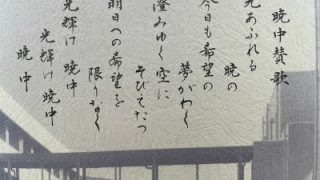 暁中賛歌
光あふれる
暁の
今日も希望の
夢がわく
澄みゆく空に
そびえたつ
明日への希望を
限りなく
光輝け 暁中
光輝け 暁中